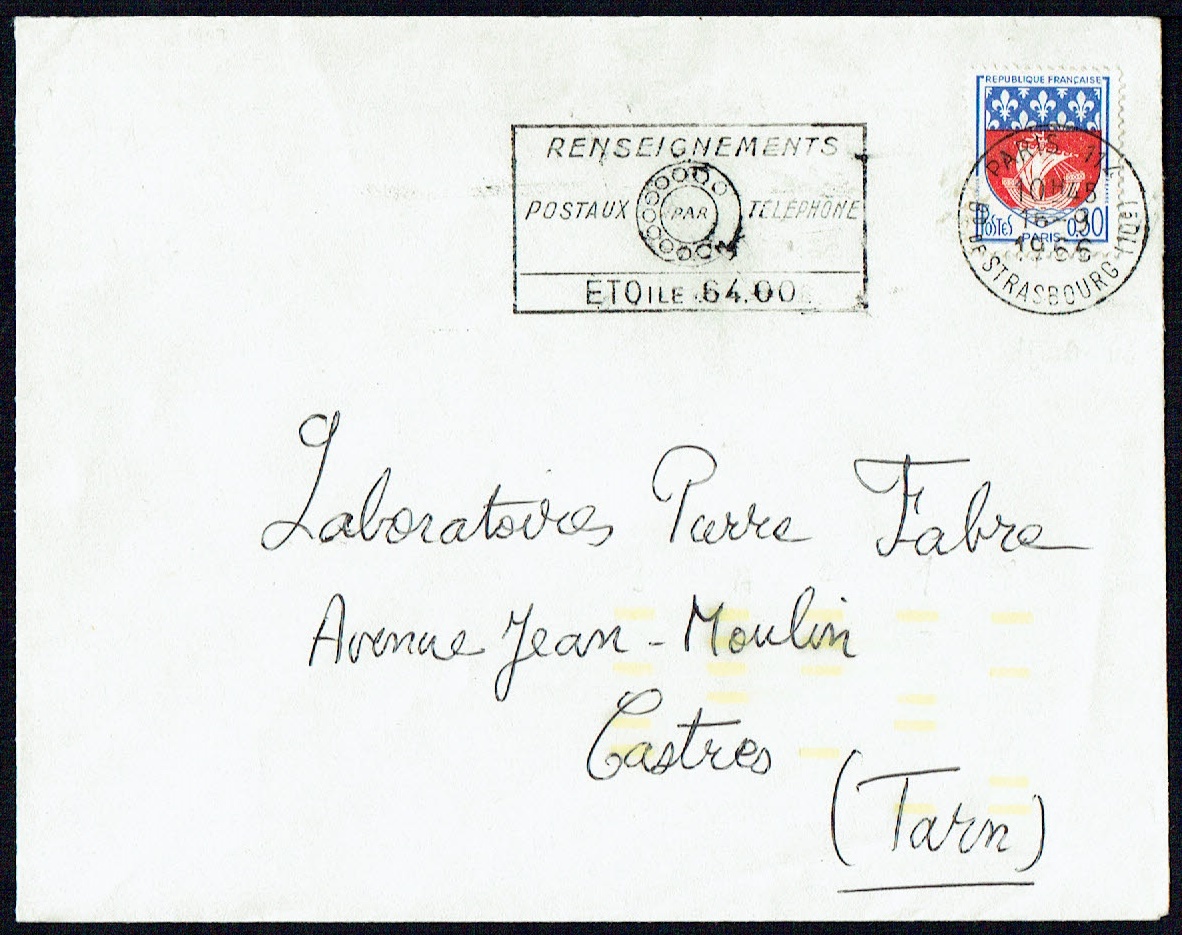 RENSEIGNEMENTS
POSTAUX PAR TÉLÉPHONE
ÉTOILE 64.00
REPUBLIQUE FRANÇAISE
POSTES PARIS 0,30
PARIS
10H45
16-9
1966
STRASBOURG (10e)
Laboratoires Pierre Fabre
Avenue Jean-Moulin
Castres
(Tarn)